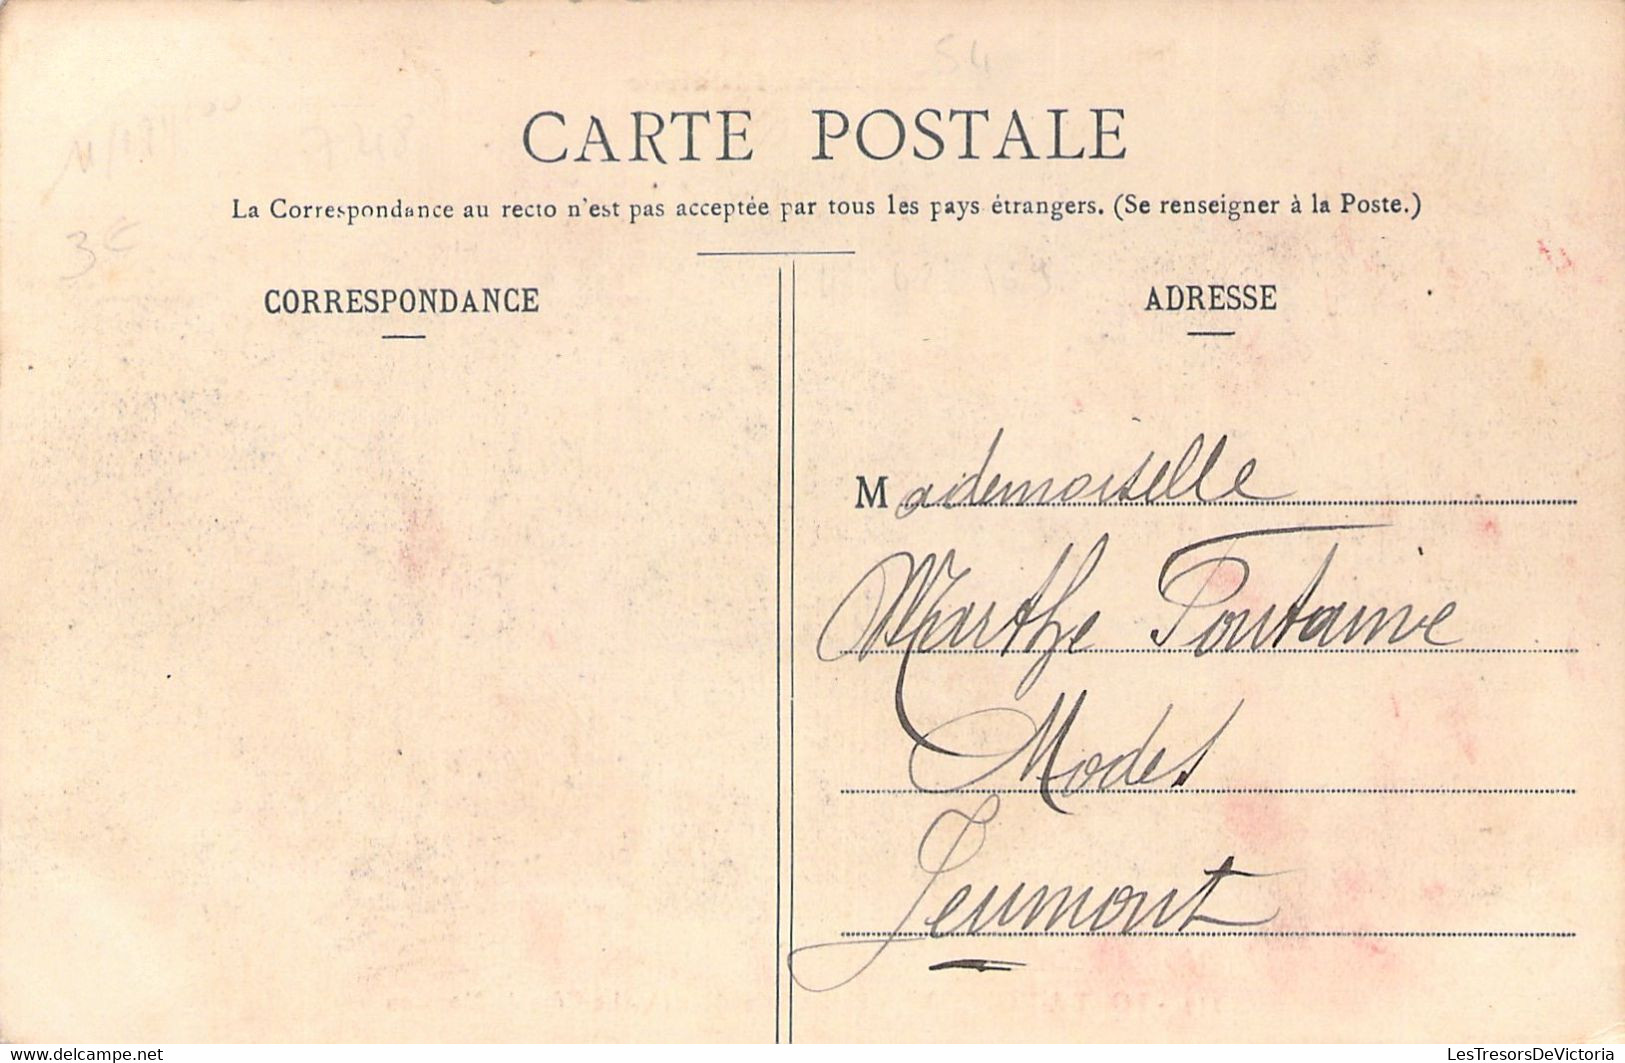 54
CARTE POSTALE
La Correspondance au recto n'est pas acceptée par tous les pays étrangers. (Se renseigner à la Poste.)
3€
CORRESPONDANCE
ADRESSE
Mademoiselle
Marthe Fontaine
Modes
Jeumont
https://www.delcampe.net
LesTresorsDeVictoria